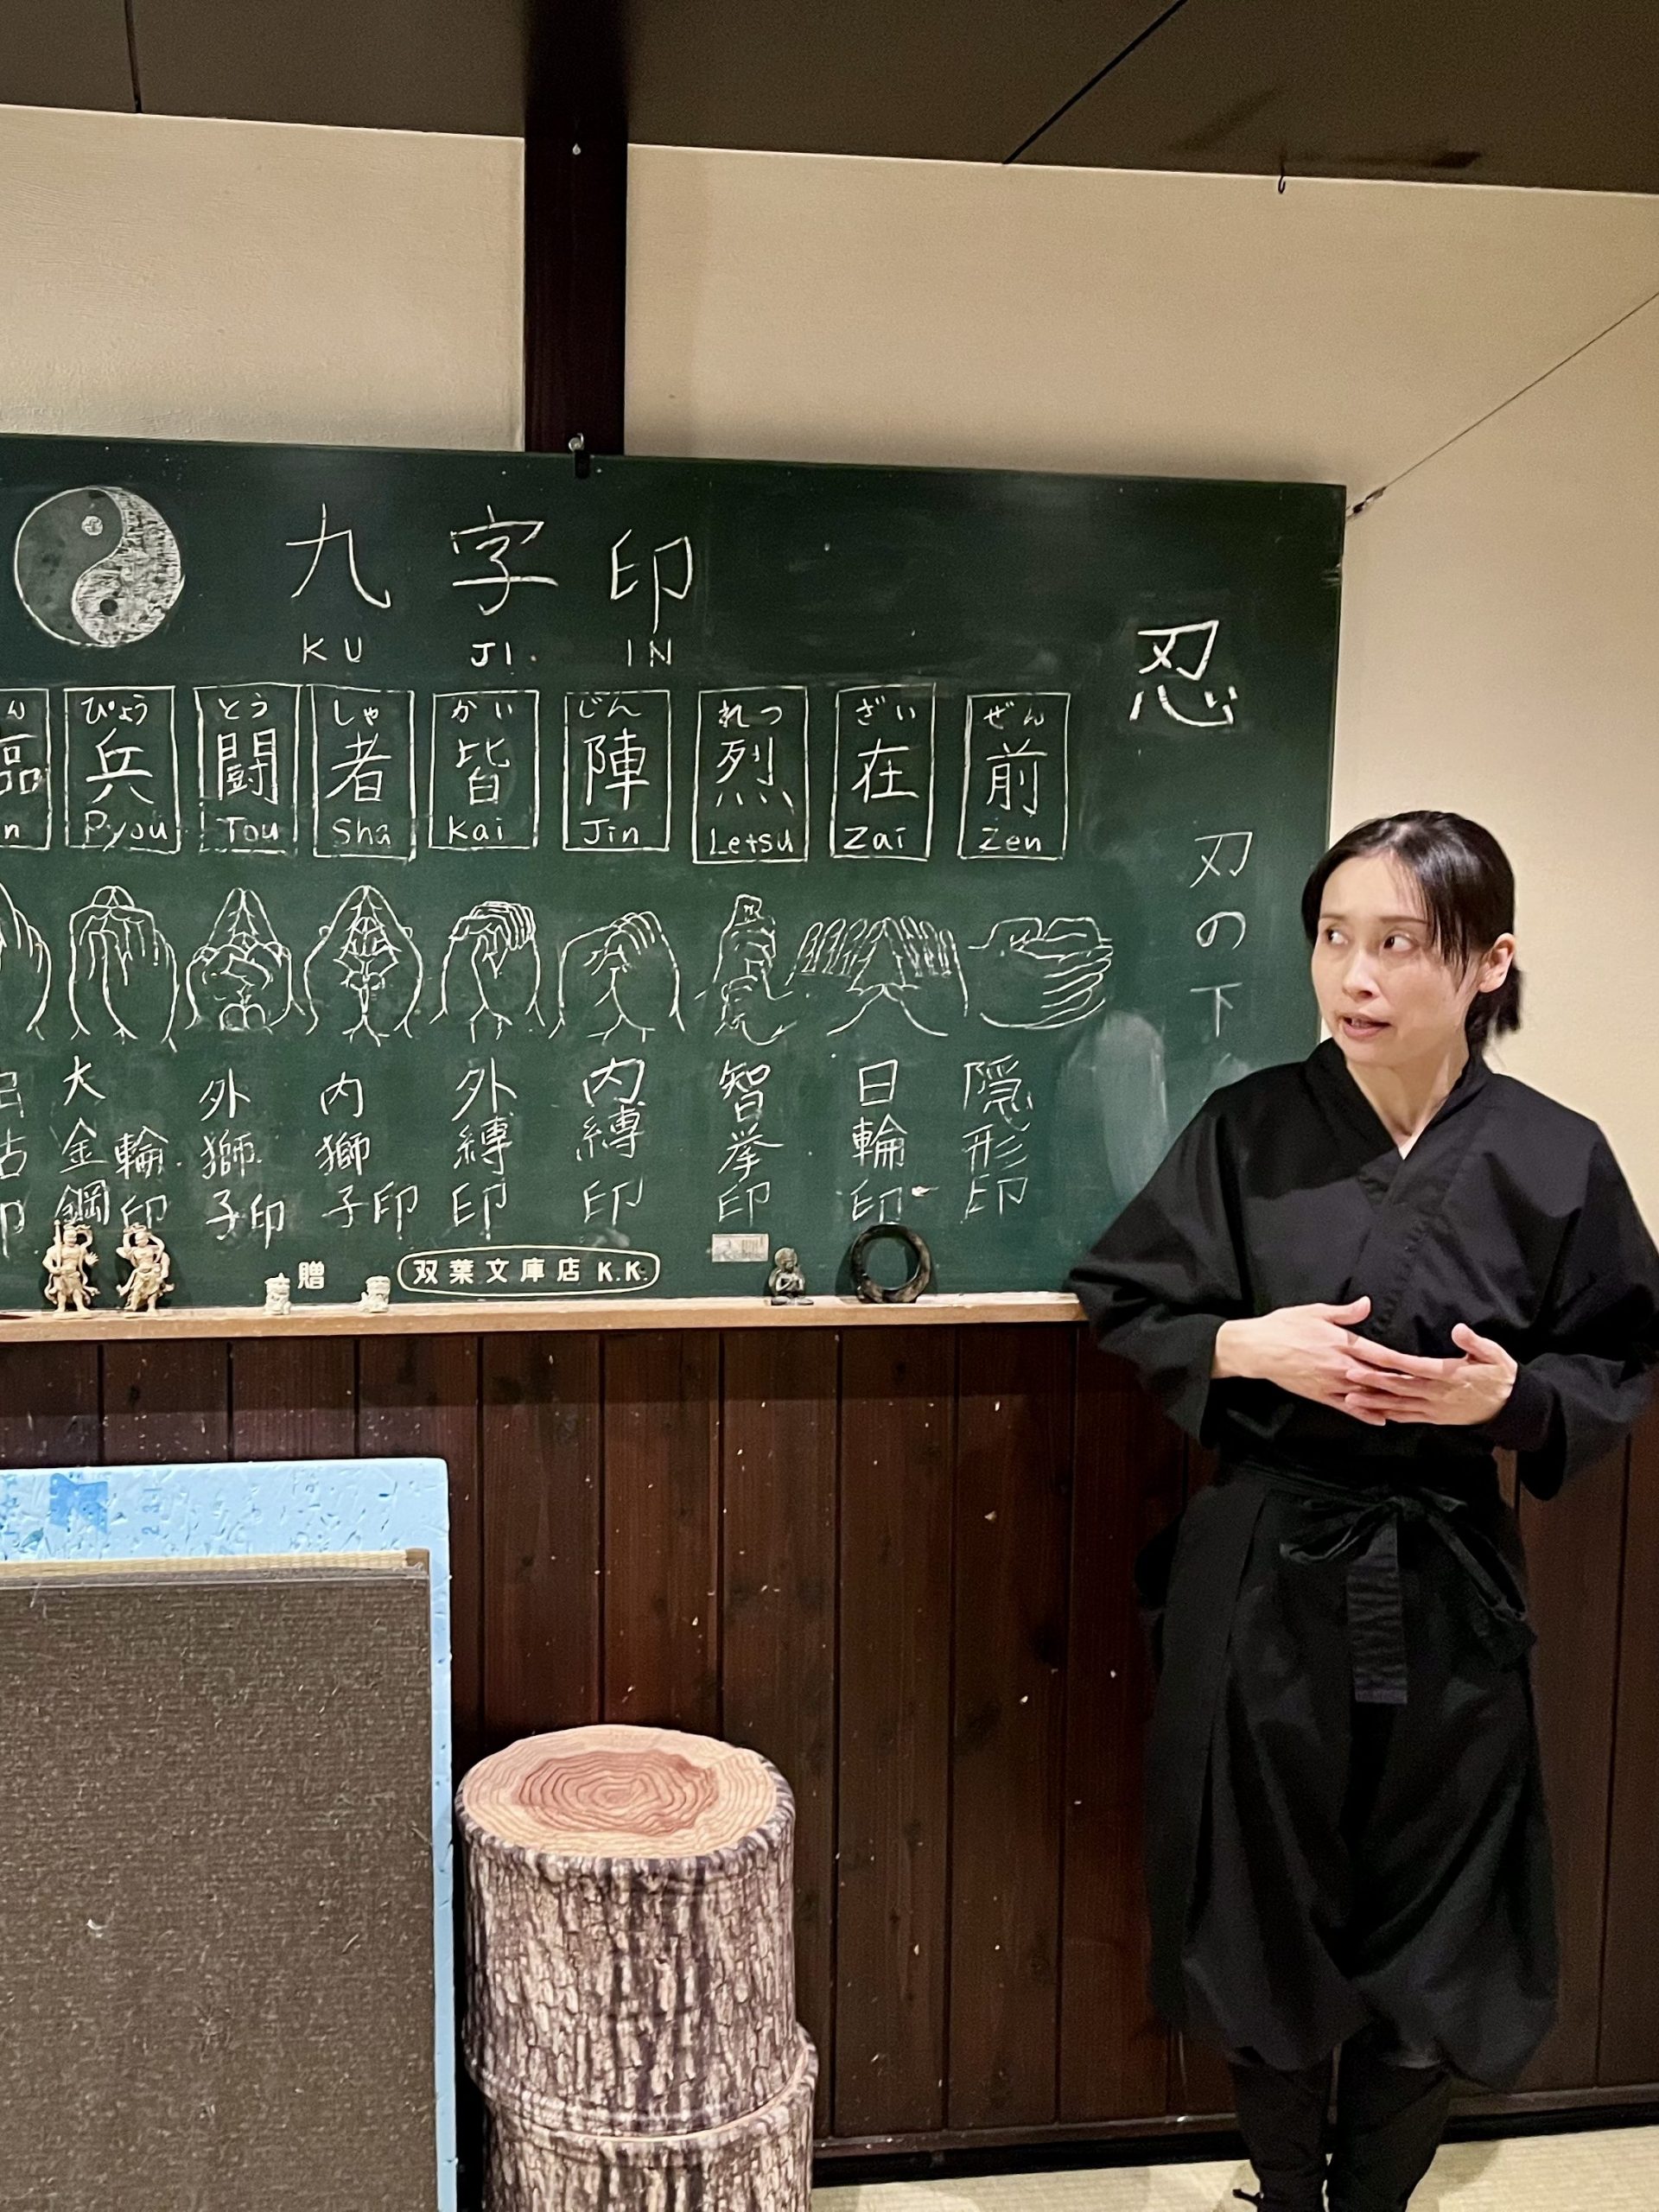 九字印
KU JI. IN
忍
ん ぴょう とう しゃ かい じん れつ ざい ぜん
臨 兵 闘 者 皆 陣 烈 在 前
n Pyou Tou Sha Kai Jin Letsu Zai Zen
刃の下
大金鋼輪印
外獅子印
内獅子印
外縛印
内縛印
智拳印
日輪印
隠形印
贈 双葉文庫店 K.K.